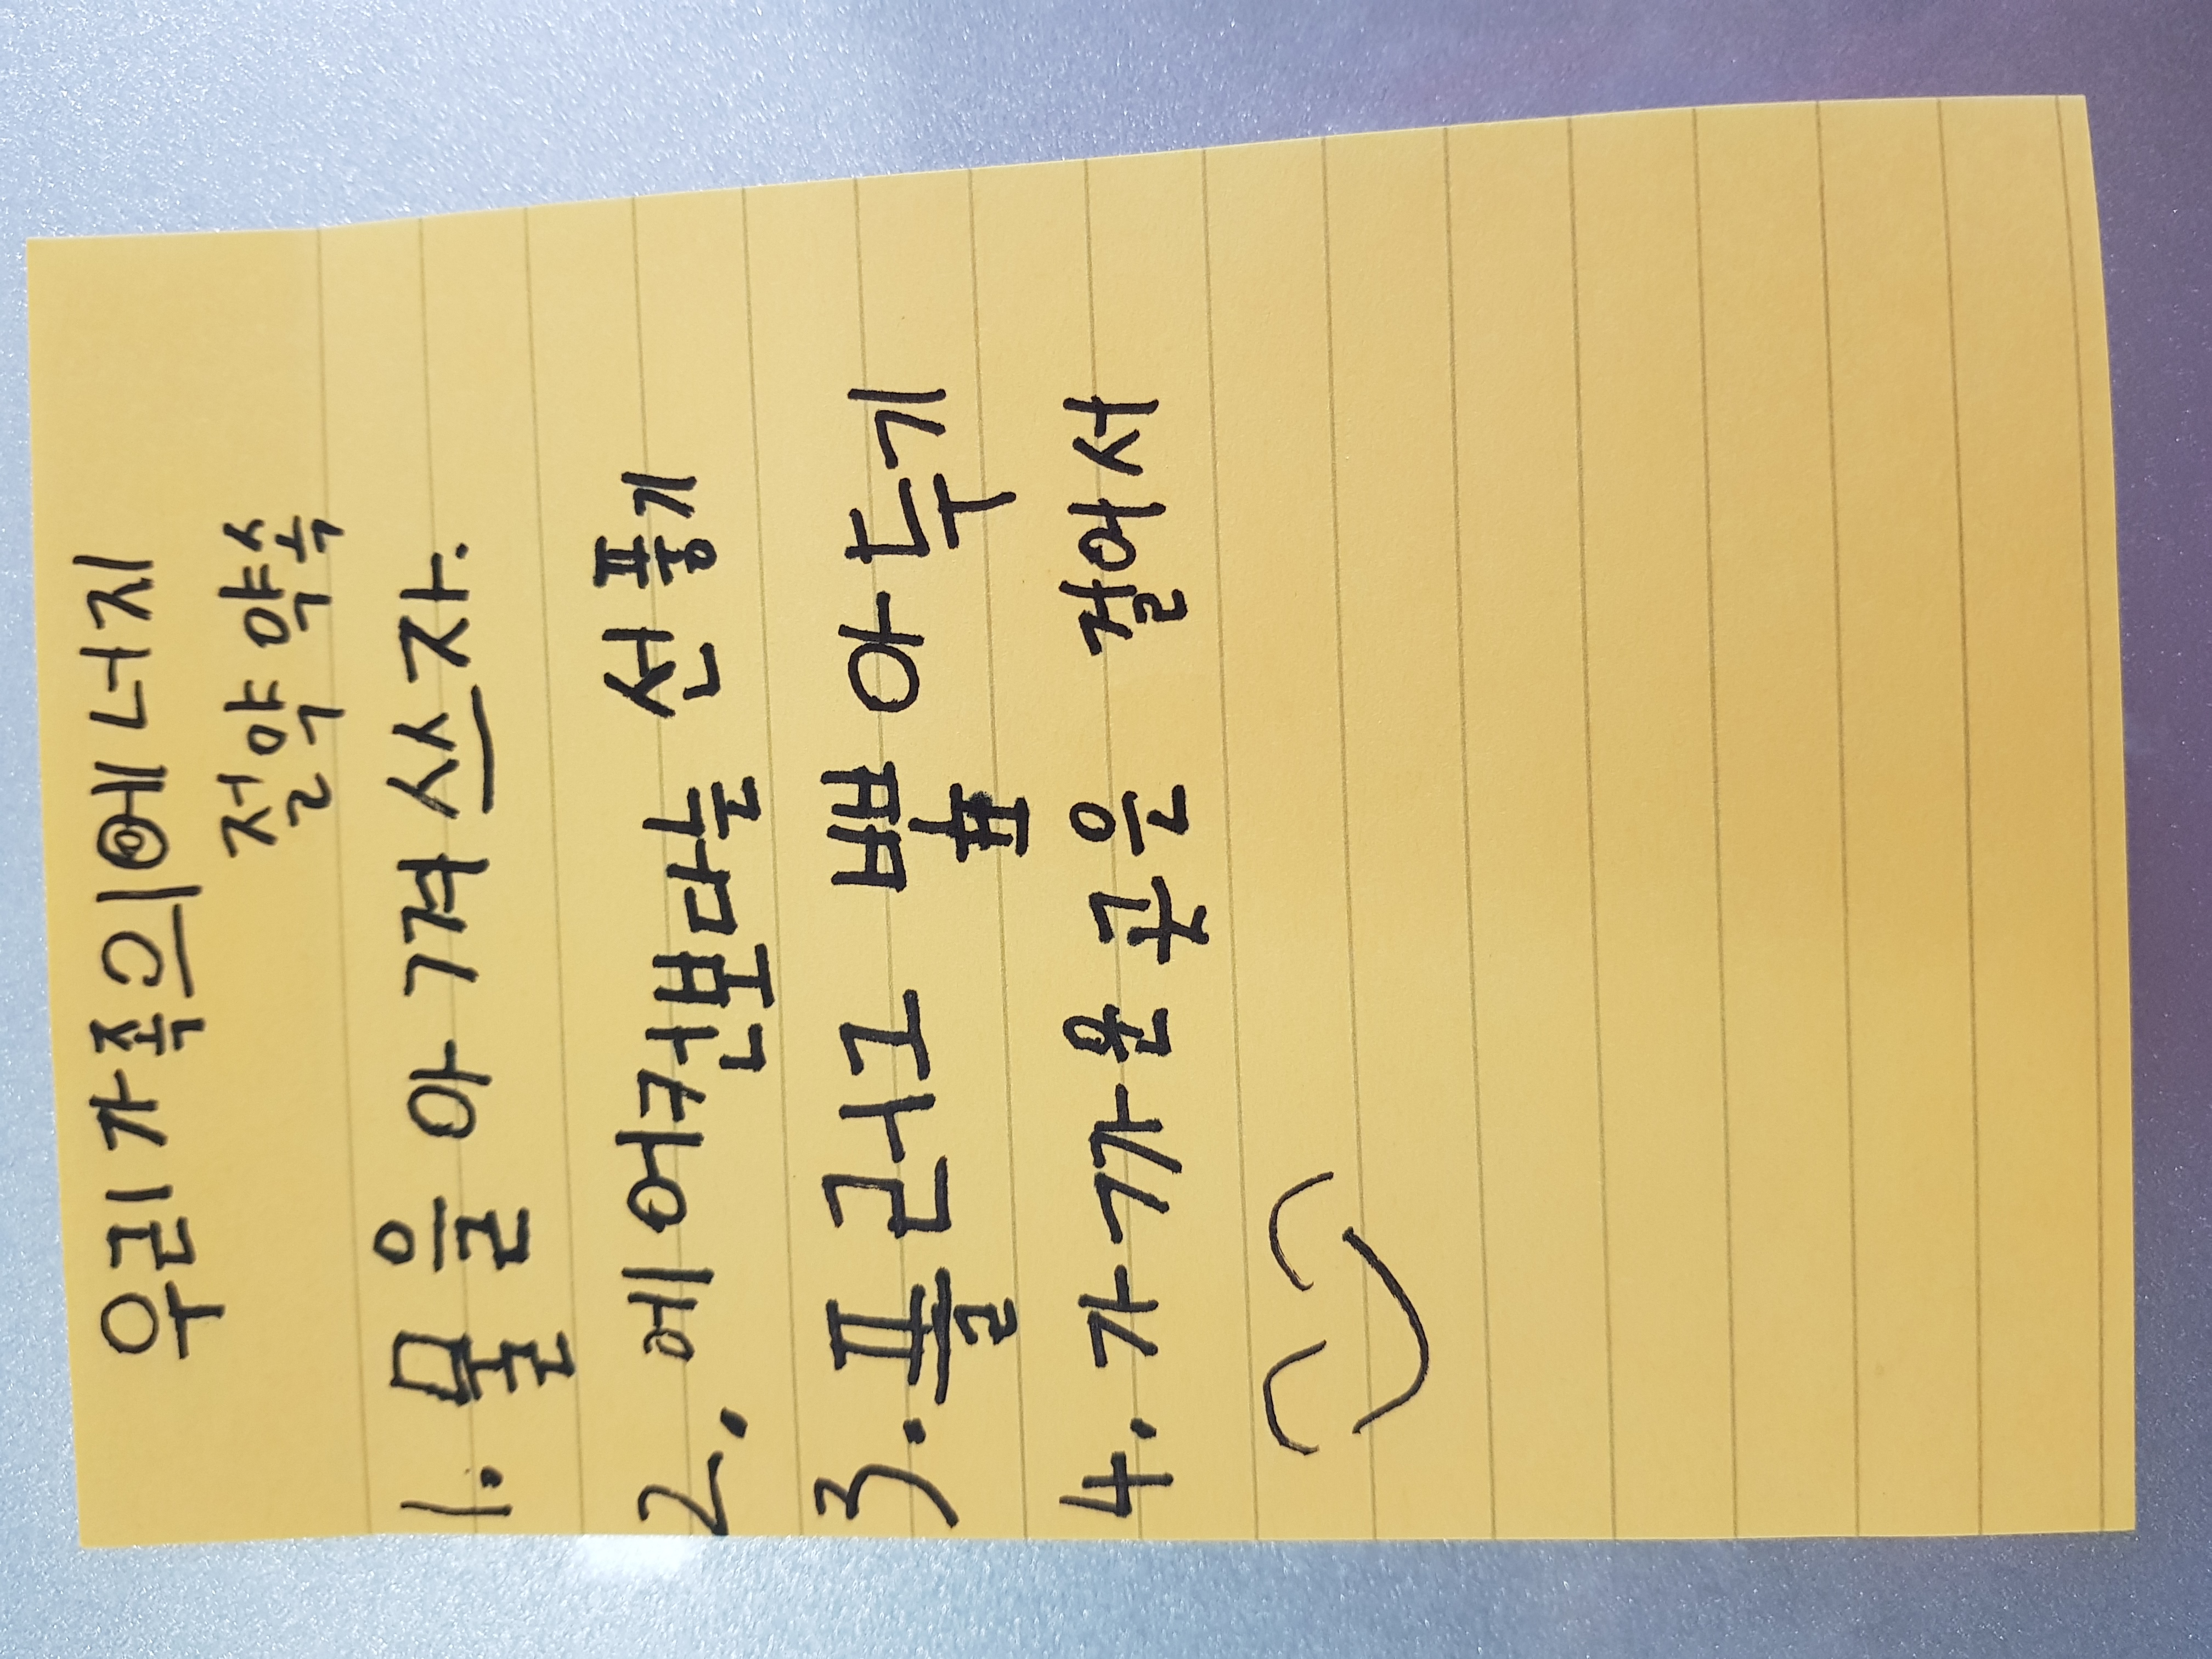 우리가족의에너지
절약 약속
1. 물을 아껴 쓰자.
2. 에어컨보다는 선풍기
3. 플러그 뽚아두기
4. 가까운 곳은 걸어서